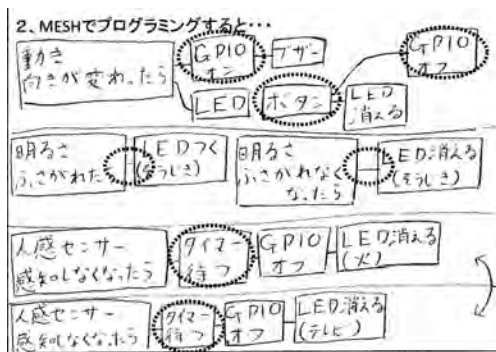 2、MESHでプログラミングすると・・・
動き
向きが変わったら
GPIO
オン
ブザー
GPIO
オフ
LED
ボタン
LED
消える
明るさ
ふさがれた
LEDつく
(そうじき)
明るさ
ふさがれなく
なったら
LED消える
(そうじき)
人感センサー
感知しなくなったら
タイマー
待つ
GPIO
オフ
LED消える
(火)
人感センサー
感知しなくなったら
タイマー
待つ
GPIO
オフ
LED消える
(テレビ)